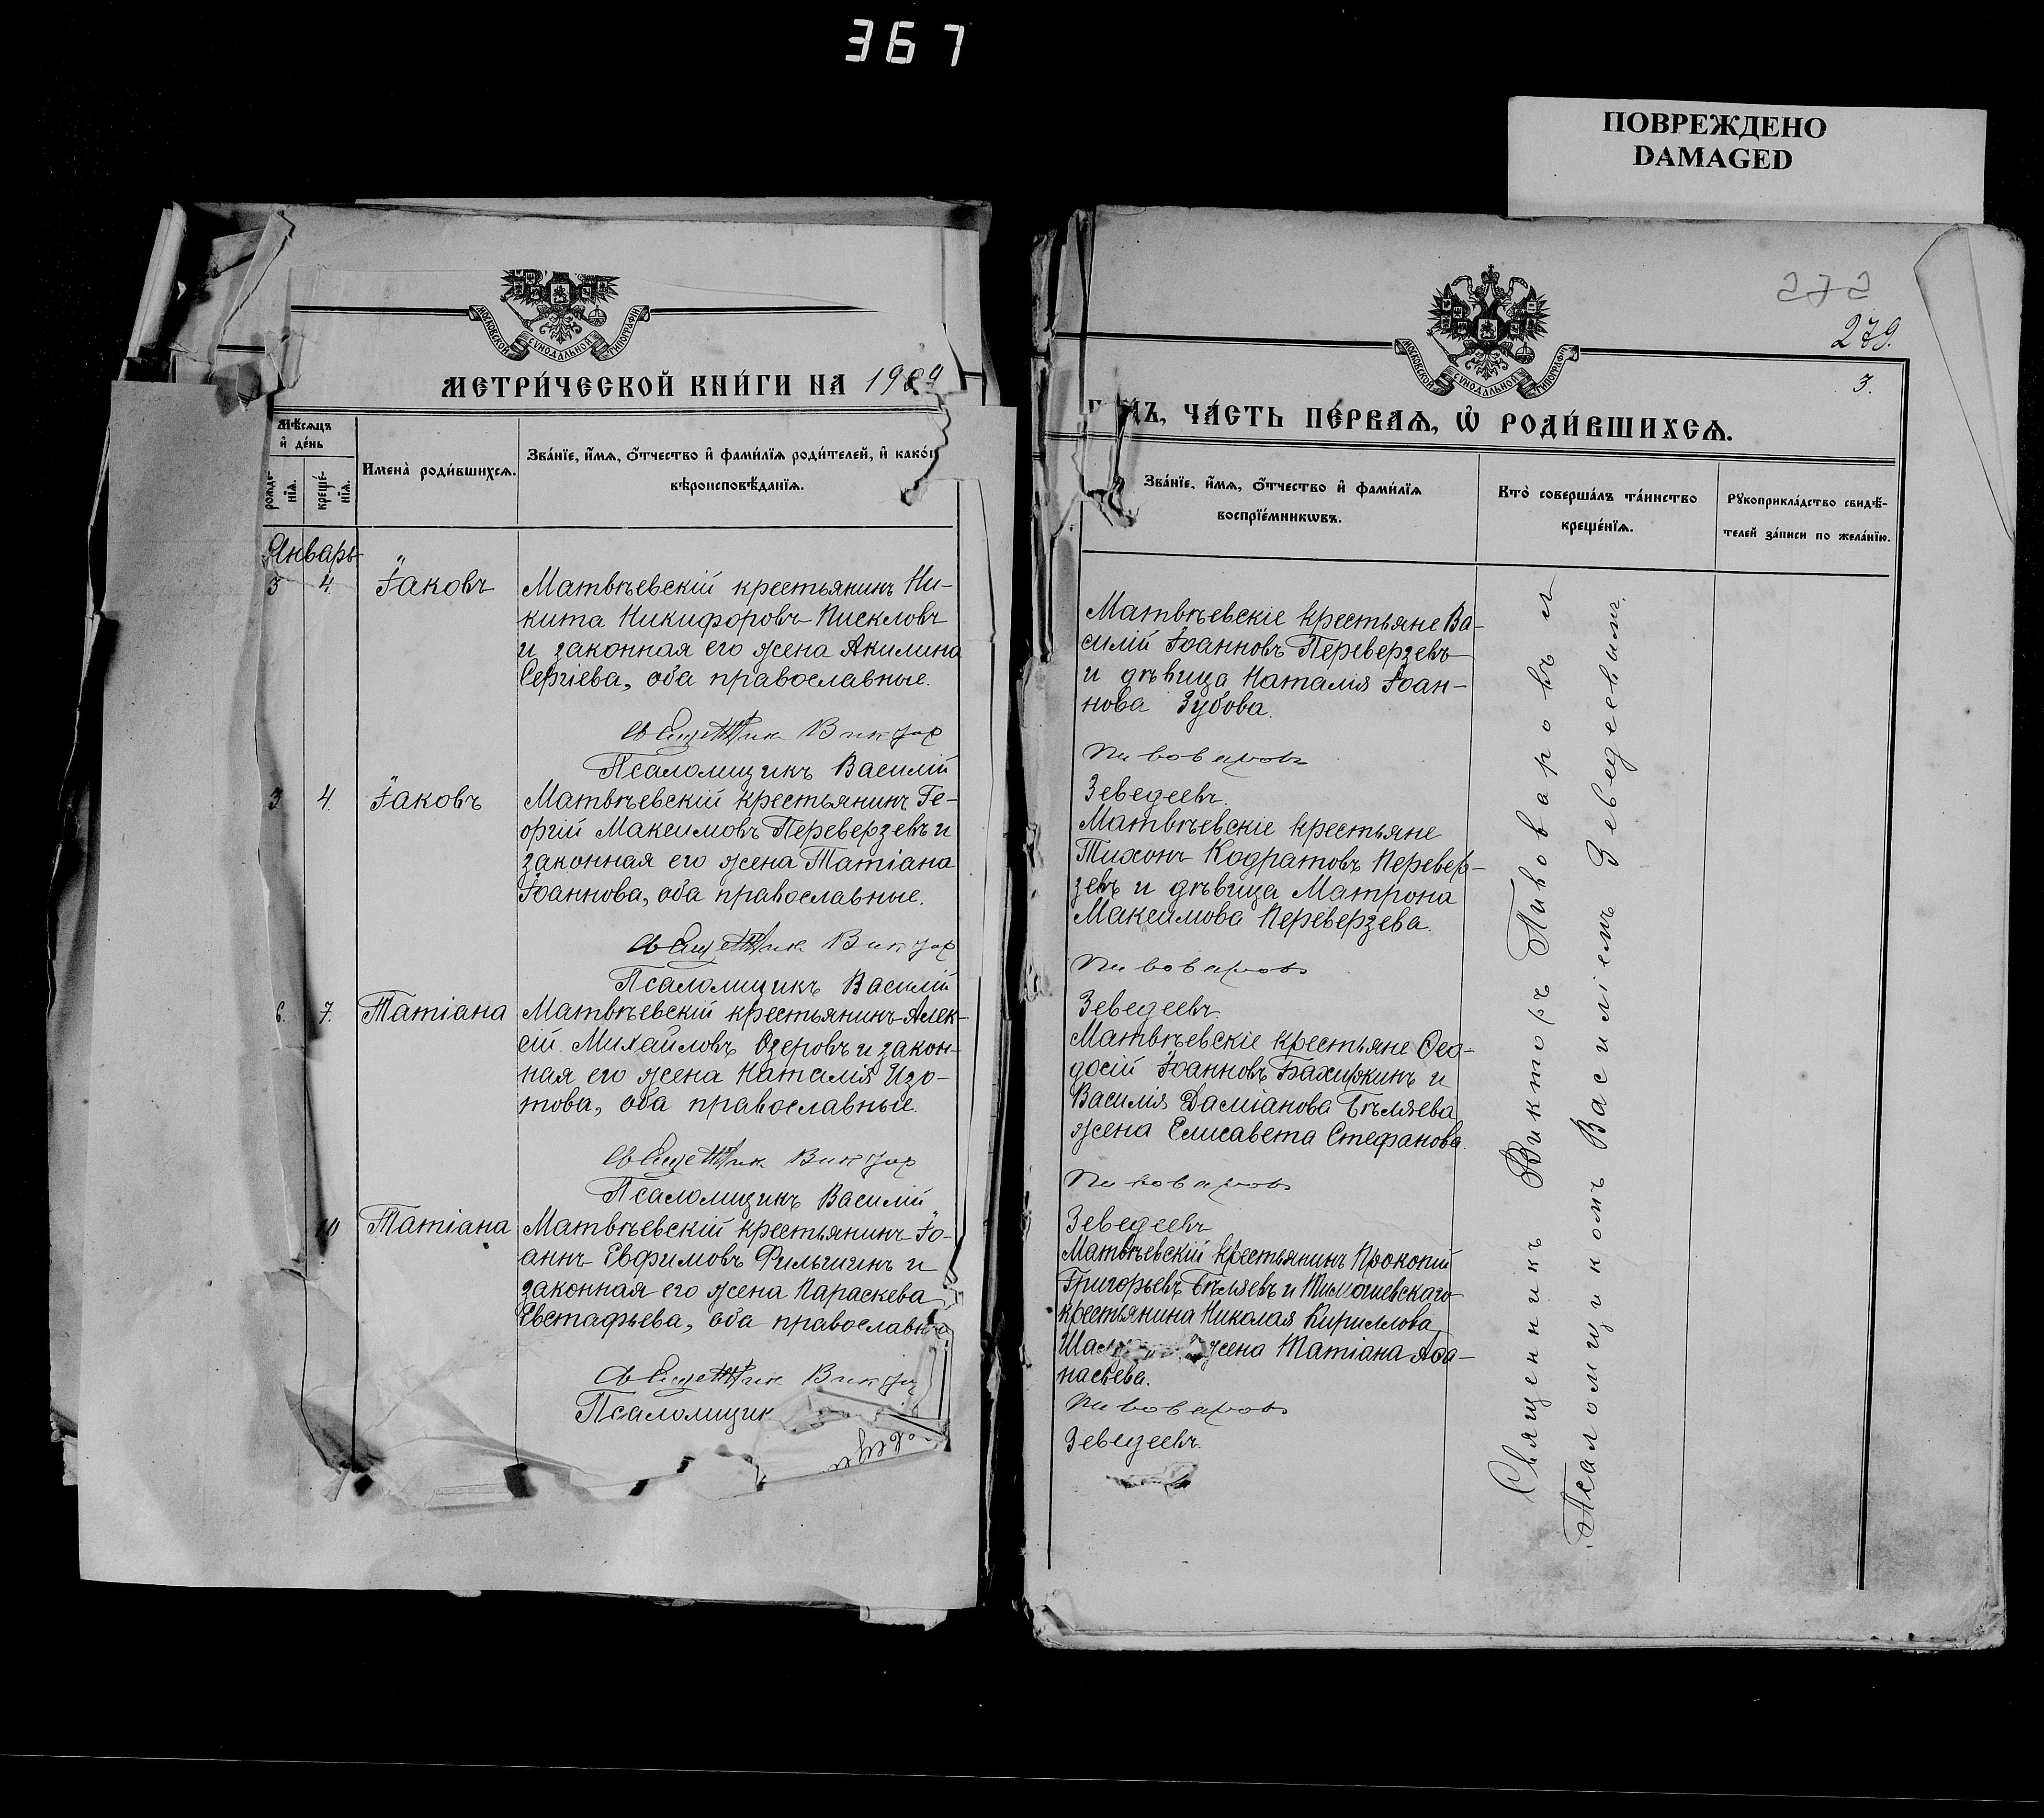 367
ПОВРЕЖДЕНО
DAMAGED
МОСКОВСКОЙ СѴНОДАЛЬНОЙ ТИПОГРАФІИ
МЕТРИ́ЧЕСКОЙ КНИ́ГИ НА 190
Мѣ́сѧцъ
и҆ де́нь
рожде-
нїѧ.
креще́-
нїѧ.
Имена̀ роди́вшихсѧ.
Зва́нїе, и҆́мѧ, ѻ҆́тчество и҆ фами́лїѧ роди́телей, и҆ како́г
вѣроисповѣ́данїѧ.
Январь
3 4. Іаковъ
Матвѣевскій крестьянинъ Ни-
кита Никифоровъ Пискловъ
и законная его жена Акилина
Сергіева, оба православные.
Священник Виктор
Псаломщикъ Василій
3 4. Іаковъ
Матвѣевскій крестьянинъ Ге-
оргій Максимовъ Переверзевъ и
законная его жена Татіана
Іоаннова, оба православные.
Священник Виктор
Псаломщикъ Василій
6. 7. Татіана
Матвѣевскій крестьянинъ Алек-
сій Михайловъ Озеровъ и закон-
ная его жена Наталія Изо-
това, оба православные.
Священник Виктор
Псаломщикъ Василій
10 Татіана
Матвѣевскій крестьянинъ Іо-
аннъ Евфимовъ Фильшинъ и
законная его жена Параскева
Евстафьева, оба православны
Священник Виктор
Псаломщик
МОСКОВСКОЙ СѴНОДАЛЬНОЙ ТИПОГРАФІИ
272
279.
3.
ГОДЪ, ЧА́СТЬ ПЕ́РВАѦ, Ѡ҆ РОДИ́ВШИХСѦ.
Зва́нїе, и҆́мѧ, ѻ҆́тчество и҆ фами́лїѧ
воспрїе́мникѡвъ.
Кто̀ соверша́лъ та́инство
креще́нїѧ.
Рꙋкоприкла́дство свидѣ́-
телей за́писи по жела́нїю.
Матвѣевскіе крестьяне Ва-
силій Іоанновъ Переверзевъ
и дѣвица Наталія Іоан-
нова Зубова.
Пивоваровъ
Зеведеевъ.
Матвѣевскіе крестьяне
Тихонъ Кодратовъ Перевер-
зевъ и дѣвица Матрона
Максимова Переверзева.
Пивоваровъ
Зеведеевъ.
Матвѣевскіе крестьяне Ѳео-
досій Іоанновъ Бахиркинъ и
Василія Даміанова Бѣляева
жена Елисавета Стефанова.
Пивоваровъ
Зеведеевъ
Матвѣевскій крестьянинъ Прокопій
Григорьевъ Бѣляевъ и Тимошевскаго
крестьянина Николая Кириллова
жена Татіана Аѳа-
насьева.
Пивоваровъ
Зеведеевъ.
Священникъ Викторъ Пивоваровъ и
Псаломщикомъ Василіемъ Зеведеевымъ.